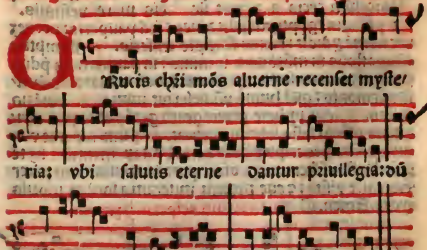 CRucis chr̄i mōs aluerne recenset myste/
ria: vbi salutis eterne dantur priuilegia: dū